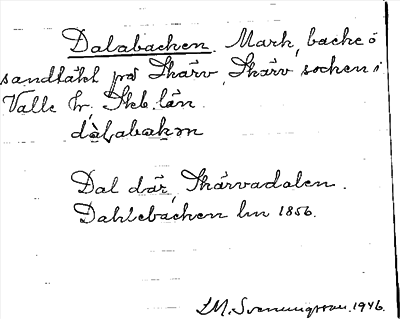 Dalabacken. Mark, backe o
sandtäkt på Skärv, Skärv socken i
Valle hr, Skb. län.
dàlabakən
Dal där, Skärvadalen.
Dahlebacken lm 1856.
LM. Svenungsson. 1946.